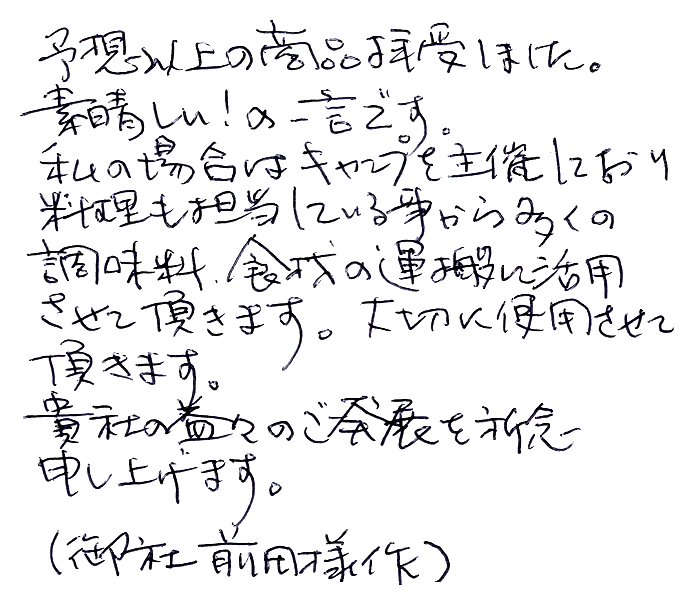 予想以上の商品拝受しました。
素晴しい!の一言です。
私の場合はキャンプを主催しており
料理も担当している事から多くの
調味料、食材の運搬に活用
させて頂きます。大切に使用させて
頂きます。
貴社の益々のご発展を祈念
申し上げます。
(御社前田様作)